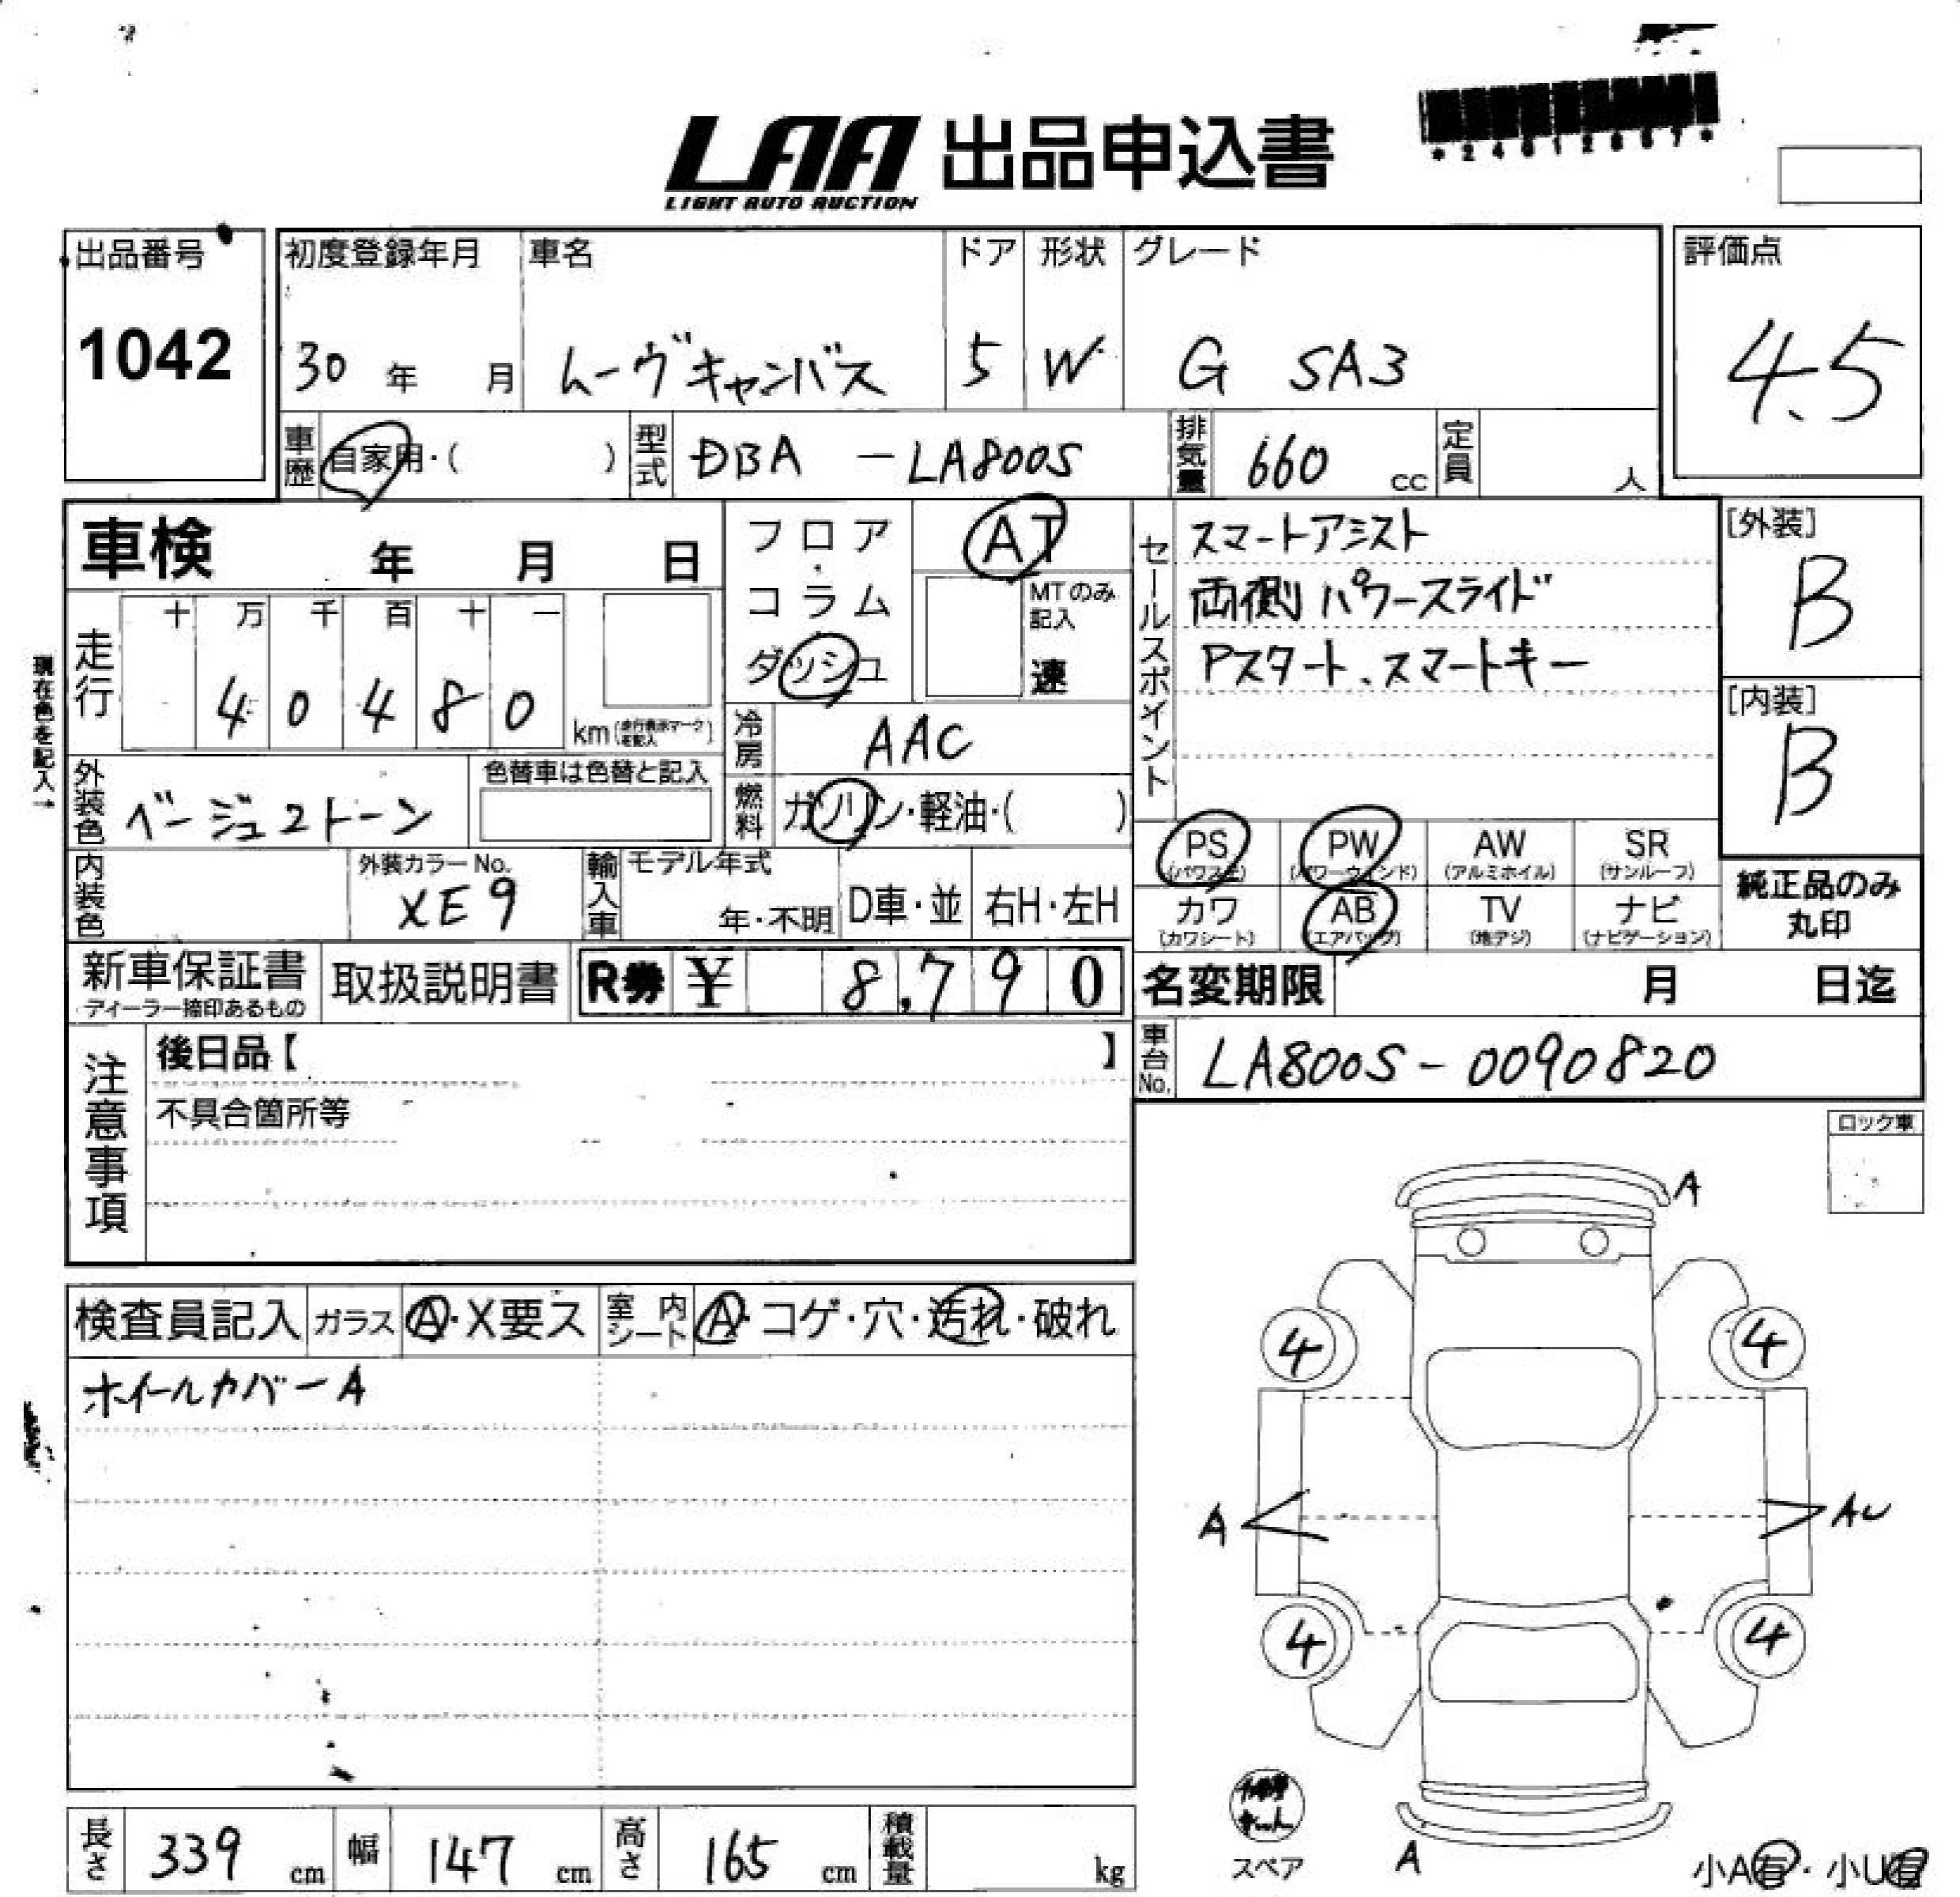 LAA 出品申込書
LIGHT AUTO AUCTION
*24012867*
出品番号
1042
初度登録年月
30 年 月
車名
ムーヴキャンバス
ドア
5
形状
W
グレード
G SA3
評価点
4.5
車歴
自家用・( )
型式
DBA -LA800S
排気量
660 cc
定員
人
車検 年 月 日
フロア・
コラム・
ダッシュ
AT
MTのみ記入
速
セールスポイント
スマートアシスト
両側パワースライド
Pスタート、スマートキー
[外装]
B
[内装]
B
現在色を記入→
走行
十 万 千 百 十 一
4 0 4 8 0
km (走行表示マークを記入)
冷房
AAC
外装色
ベージュ2トーン
色替車は色替と記入
燃料
ガソリン・軽油・( )
内装色
外装カラーNo.
XE9
輸入車
モデル年式
年・不明
D車・並
右H・左H
PS (パワステ)
PW (パワーウインド)
AW (アルミホイル)
SR (サンルーフ)
カワ (カワシート)
AB (エアバッグ)
TV (地デジ)
ナビ (ナビゲーション)
純正品のみ
丸印
新車保証書
ディーラー捺印あるもの
取扱説明書
R券 ¥ 8,790
名変期限 月 日迄
注意事項
後日品【 】
不具合箇所等
車台No.
LA800S-0090820
ロック車
検査員記入
ガラス
A・X要ス
室内シート
A・コゲ・穴・汚れ・破れ
ホイールカバーA
A
4
4
A
AU
4
4
スペア
A
小A有・小U有
長さ 339 cm
幅 147 cm
高さ 165 cm
積載量 kg